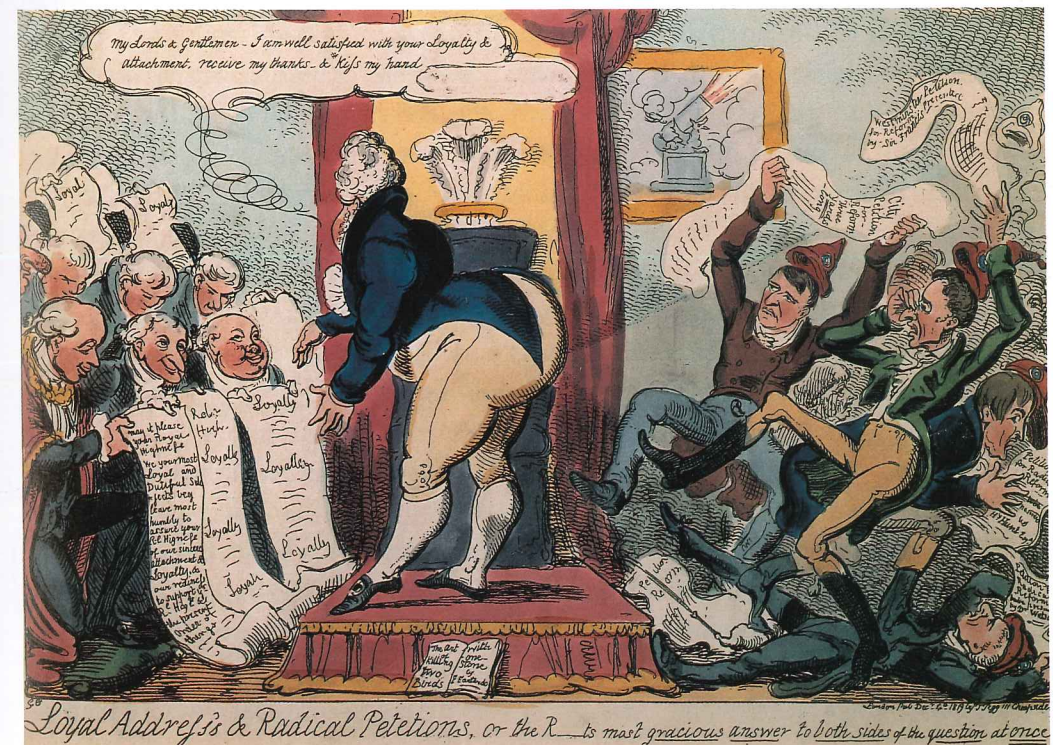 My Lords & Gentlemen - I am well satisfied with your Loyalty &
attachment, receive my thanks - & Kiss my hand
Loyal
Loyalty
may it please
your Royal
Highness
We your most
Loyal and
Dutiful Sub
jects beg
leave most
humbly to
assure your
Rl Highness
of our sincere
attachment &
Loyalty, &
our rediness
to support yr
Rl Highss &
the present
order of
things
Royl
Highss
Loyalty
Loyalty
Loyalty
Loyalty
Loyalty
Loyalty
The art
of
Killing
Two
Birds
with
one
Stone
by
City
Petition
for
Reform
Westminster Petition
for Reform Presented
by Sir Francis
Petition
for
Reform
Hunt
Petition
Re orm
GC
London Pub Decr 4th 1819 by T Tegg 111 Cheapside
Loyal Address's & Radical Petetions, or the R___ts most gracious answer to both sides of the question at once